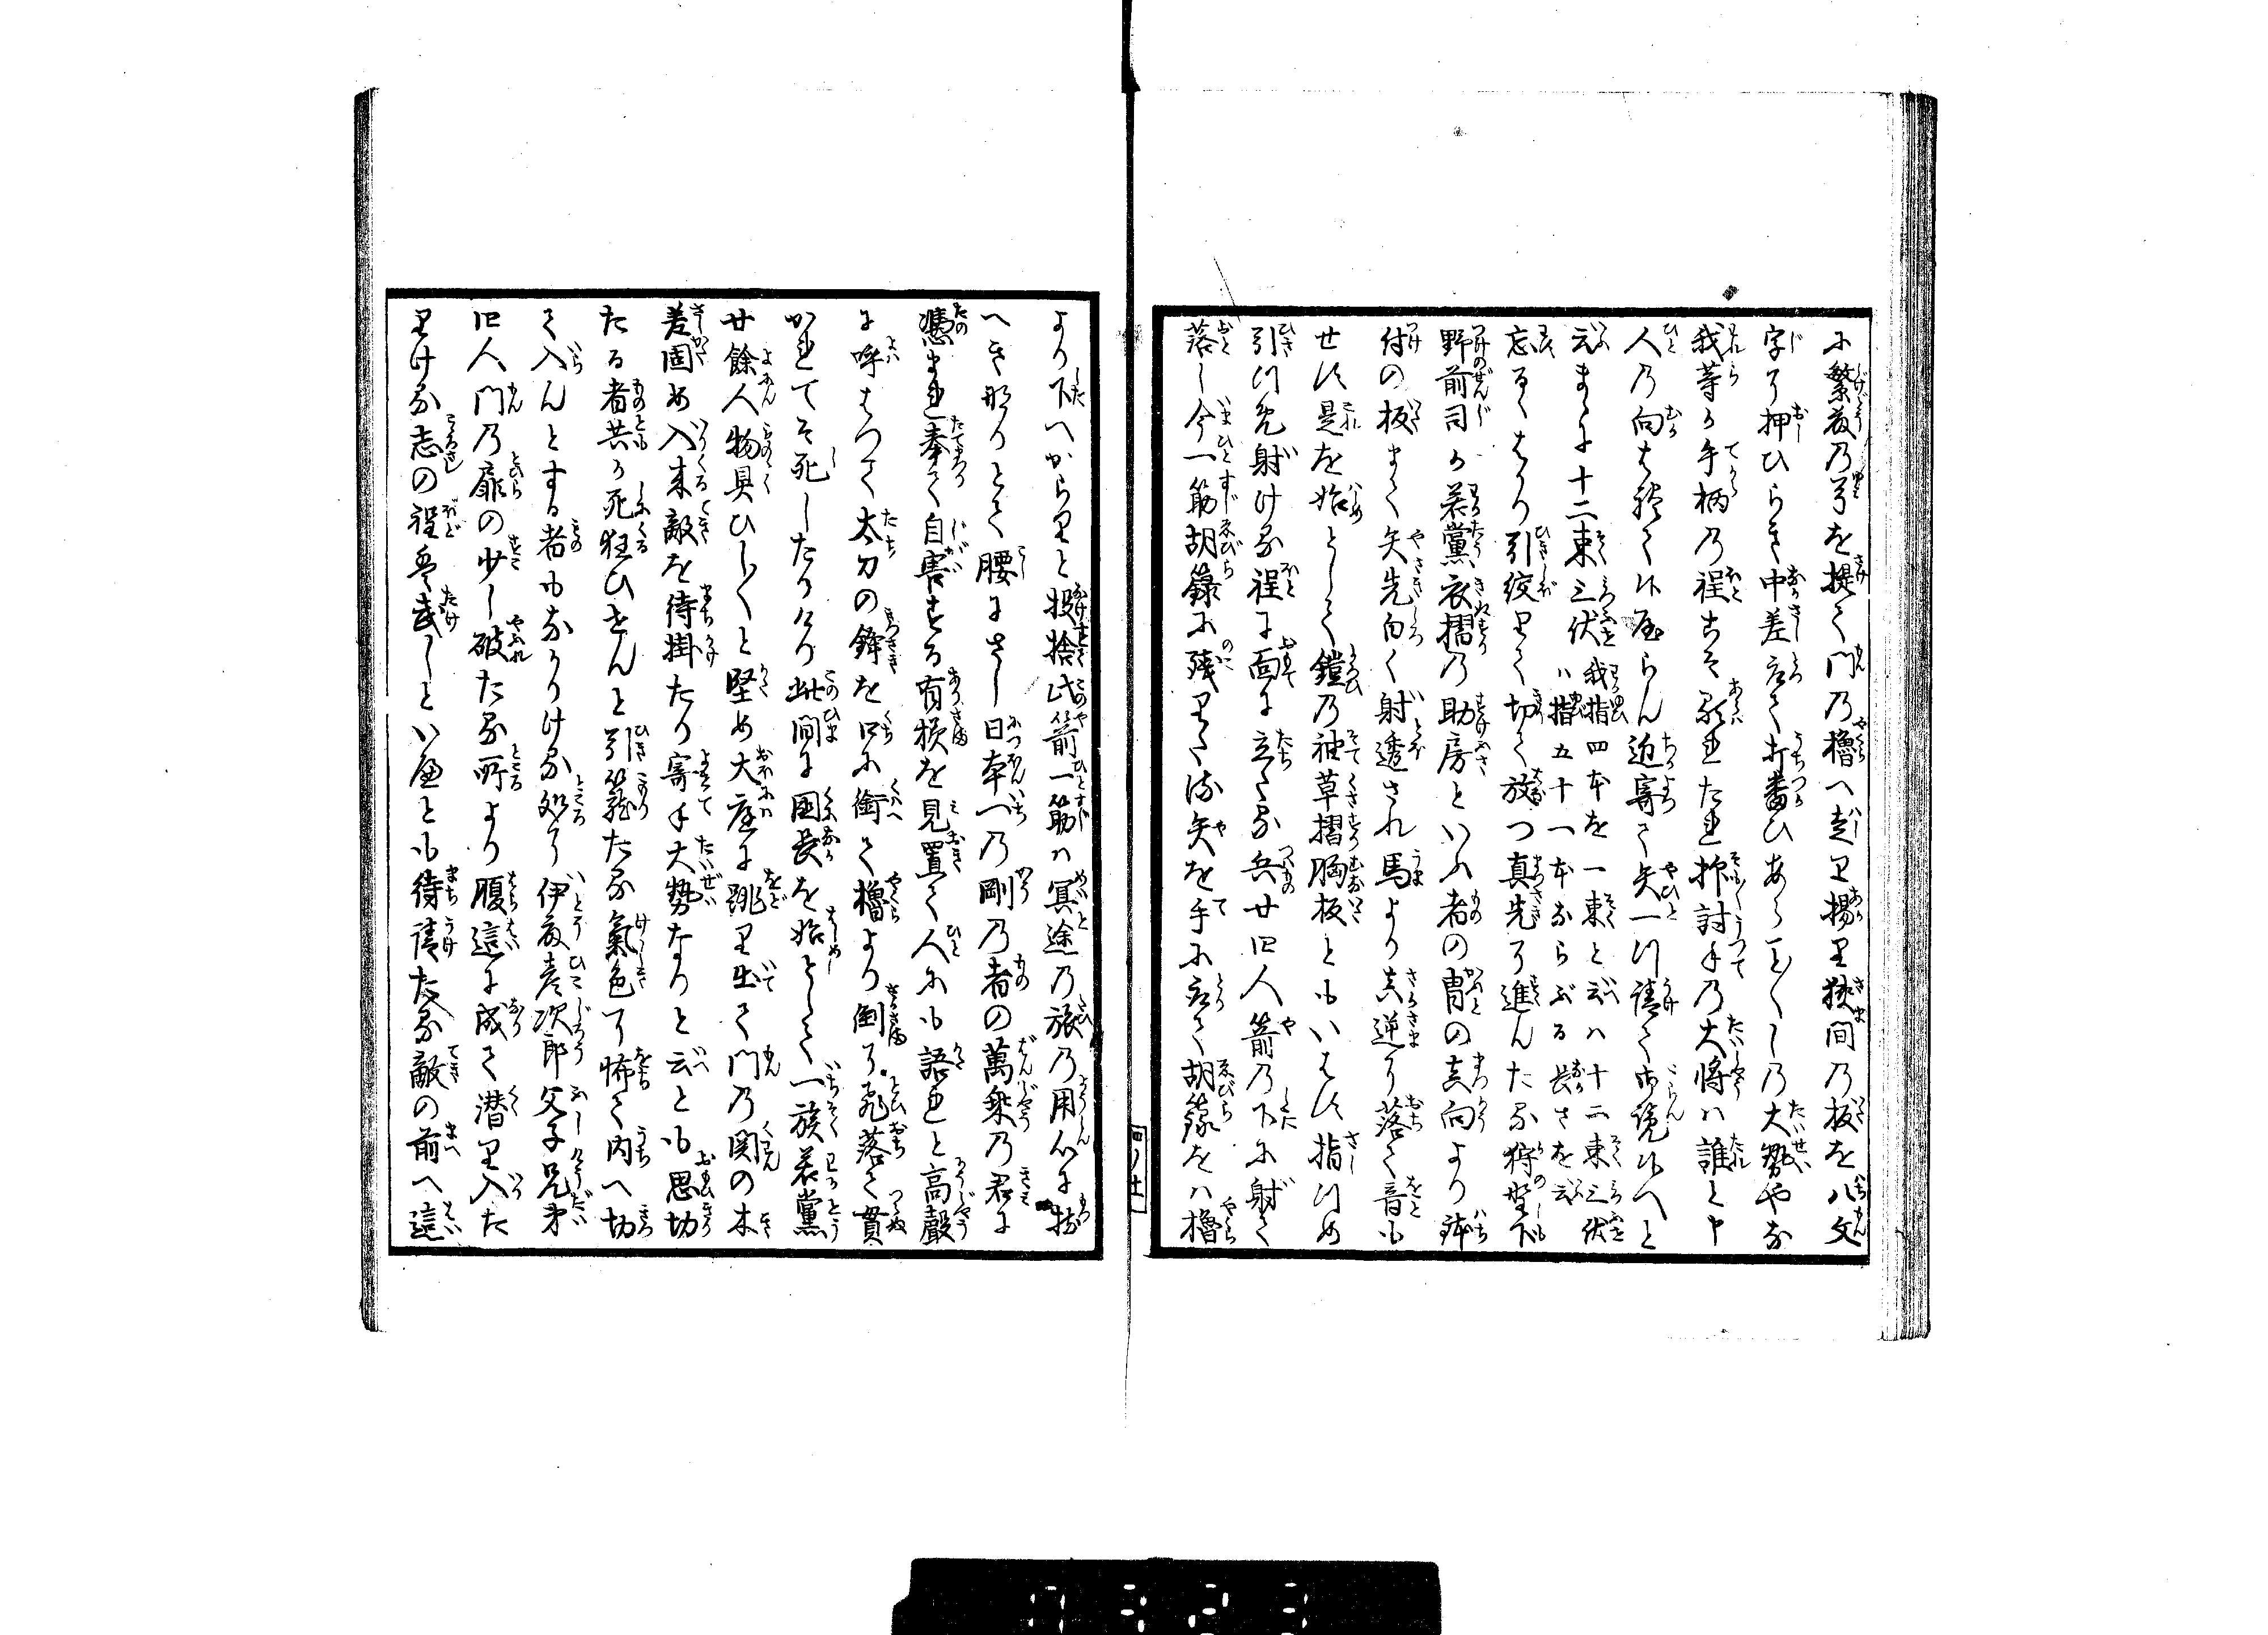 に繁藤乃弓を提て門乃櫓へ走り揚り狭間乃板を八文
字に押ひらき中差取て打番ひあらこと〱しの大勢やな
我等か手柄乃程こそ顕れたれ抑討手乃大将ハ誰と申
人乃向はれて候やらん近寄て矢一ツ請て御覧候へと
云まゝに十二束三伏 我指四本を一束と云ハ十二束三伏ハ指五十一本ならぶる長さを云
忘るゝはかり引絞りて切て放つ真先に進んたる狩野下
野前司か若黨衣摺乃助房といふ者の冑の真向より鉢
付の板まて矢先白く射透され馬より真逆に落て音も
せす是を始として鎧乃袖草摺胸板ともいはす指つめ
引つめ射ける程に面に立たる兵廿四人箭乃下に射て
落し今一筋胡籙に残りたる矢を手に取て胡籙をハ櫓
四ノ十一
より下へからりと投捨此箭一筋ハ冥途乃旅乃用心に持
へき那りとて腰にさし日本一乃剛乃者の萬乗乃君に
憑まれ奉て自害する有様を見置て人にも語れと高聲
に呼はつて太刀の鋒を口に銜て櫓より倒に飛落て貫
かれてそ死したりける此間に国長を始として一族若黨
廿餘人物具ひし〱と堅め大庭に跳り出て門乃関の木
差固め入来敵を待掛たり寄手大勢なりと云とも思切
たる者共か死狂ひせんと引籠たる氣色に怖て内へ切
て入んとする者もなかりける処に伊藤彦次郎父子兄弟
四人門乃扉の少し破たる所より腹這に成て潜り入た
りける志の程は武しといへとも待請たる敵の前へ這